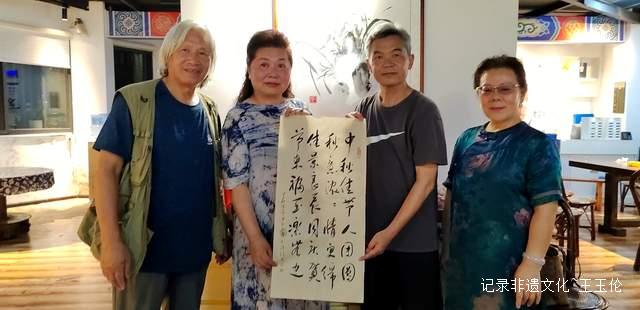 中秋佳节人团圆
秋意浓浓情意绵
佳景良辰同庆贺
节来福至乐无边
记录非遗文化-王玉伦